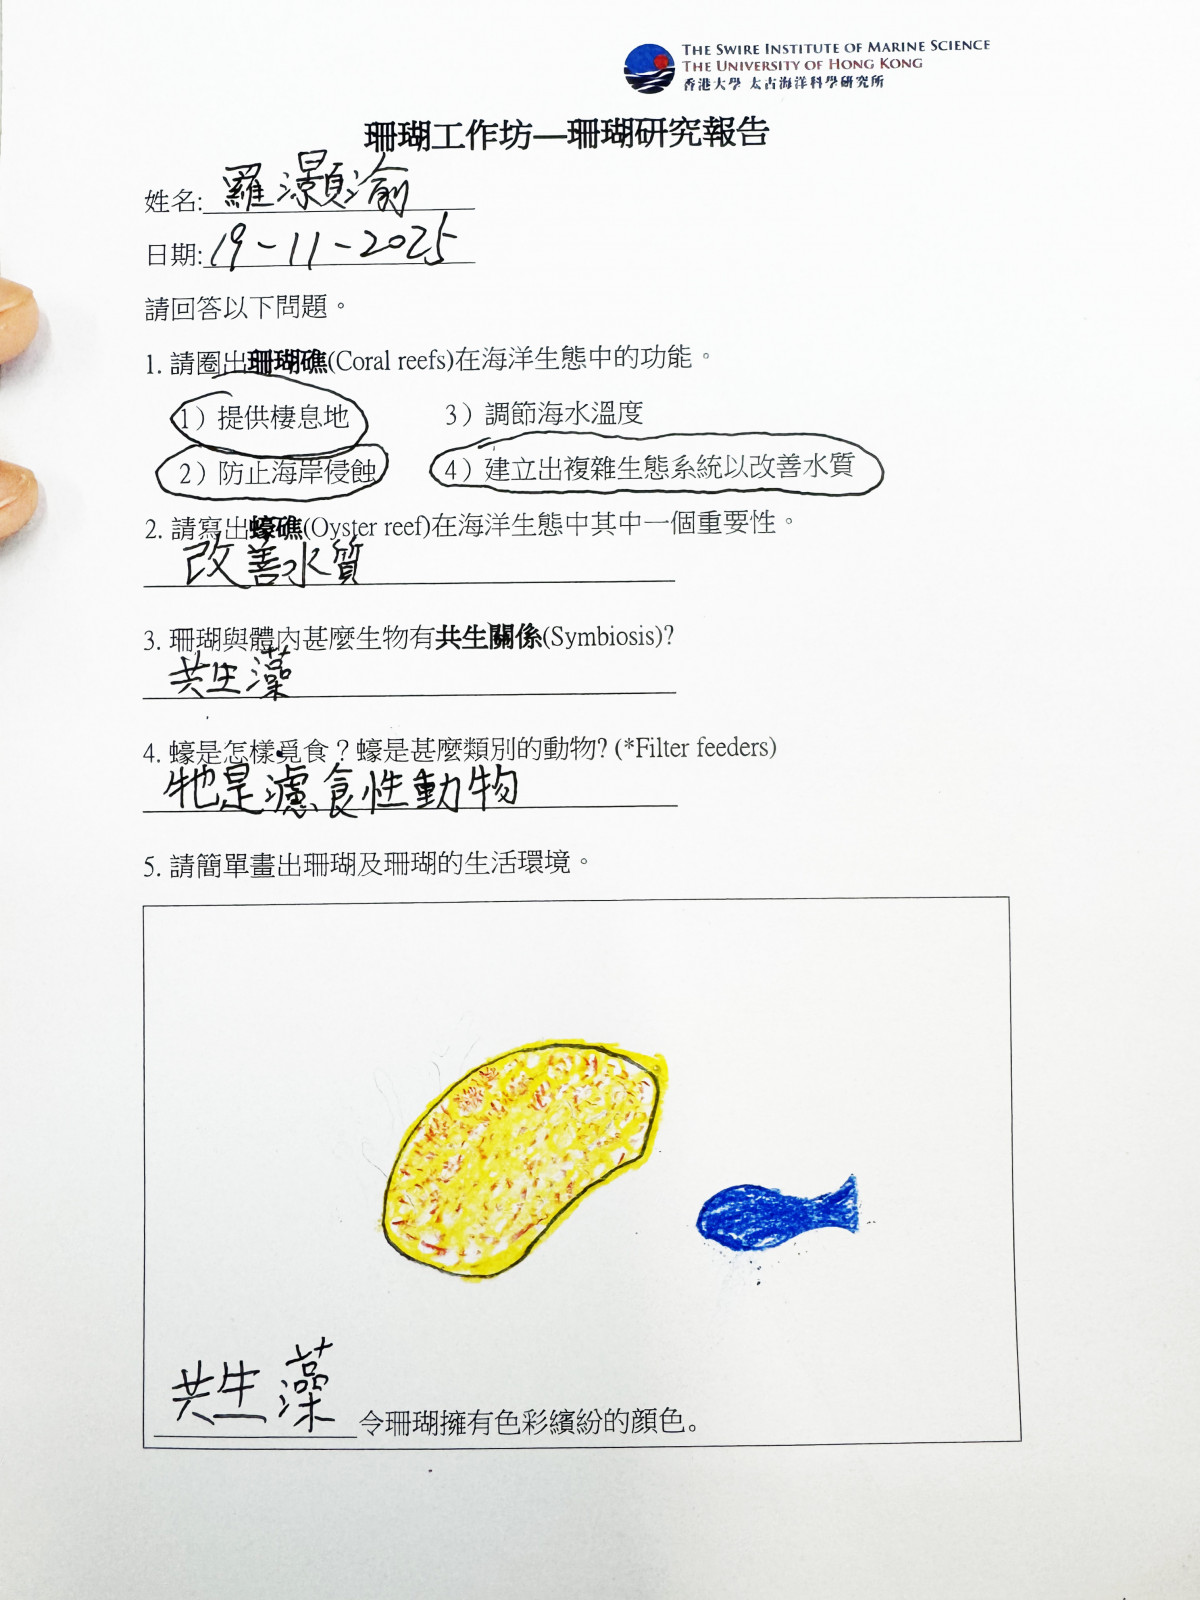 THE SWIRE INSTITUTE OF MARINE SCIENCE
THE UNIVERSITY OF HONG KONG
香港大學 太古海洋科學研究所
珊瑚工作坊—珊瑚研究報告
姓名: 羅灝渝
日期: 19-11-2025
請回答以下問題。
1. 請圈出珊瑚礁(Coral reefs)在海洋生態中的功能。
1）提供棲息地 3）調節海水溫度
2）防止海岸侵蝕 4）建立出複雜生態系統以改善水質
2. 請寫出蠔礁(Oyster reef)在海洋生態中其中一個重要性。
改善水質
3. 珊瑚與體內甚麼生物有共生關係(Symbiosis)?
共生藻
4. 蠔是怎樣覓食？蠔是甚麼類別的動物? (*Filter feeders)
牠是濾食性動物
5. 請簡單畫出珊瑚及珊瑚的生活環境。
共生藻 令珊瑚擁有色彩繽紛的顏色。